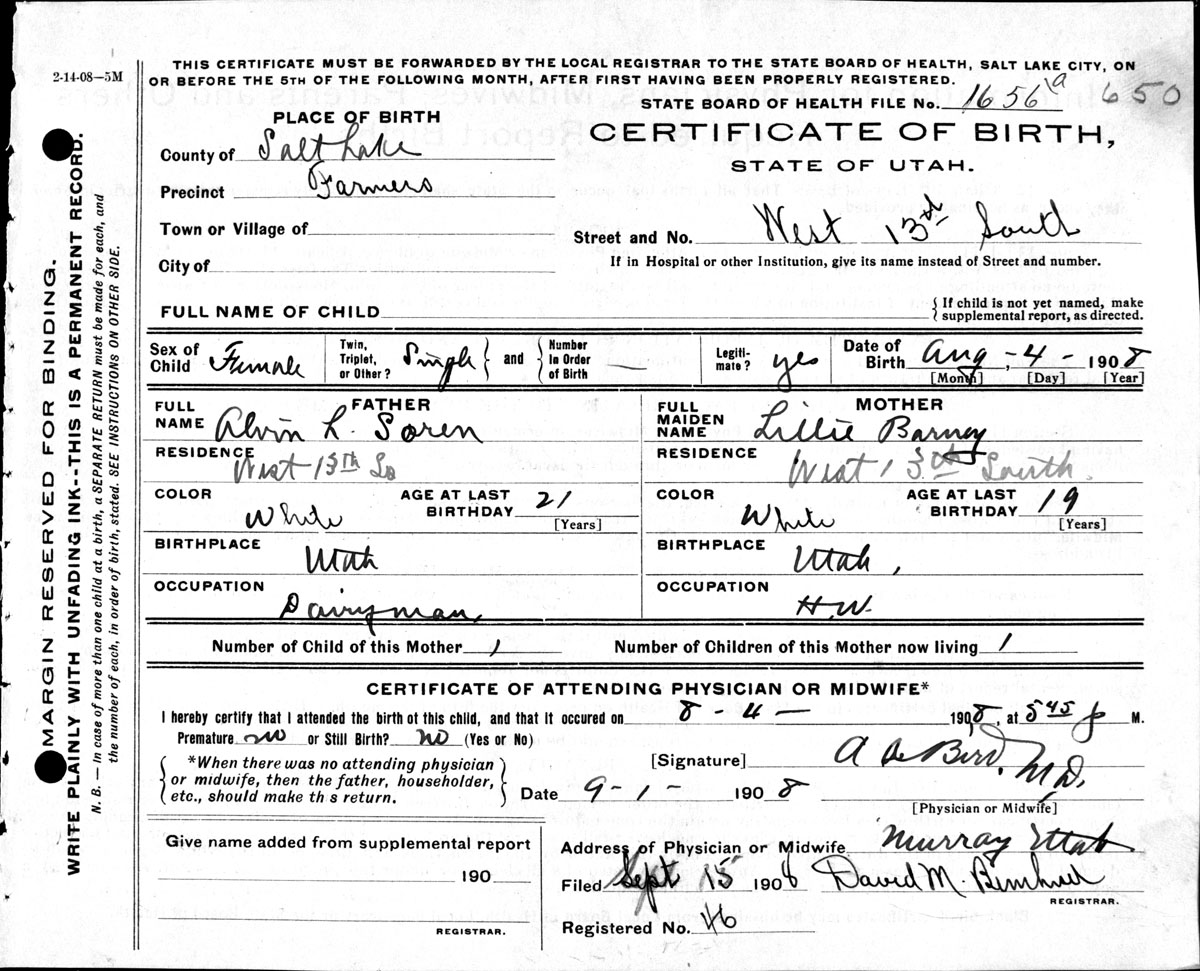 2-14-08—5M
THIS CERTIFICATE MUST BE FORWARDED BY THE LOCAL REGISTRAR TO THE STATE BOARD OF HEALTH, SALT LAKE CITY, ON
OR BEFORE THE 5TH OF THE FOLLOWING MONTH, AFTER FIRST HAVING BEEN PROPERLY REGISTERED.
STATE BOARD OF HEALTH FILE No. 1656 a 650
PLACE OF BIRTH
CERTIFICATE OF BIRTH,
STATE OF UTAH.
County of Salt Lake
Precinct Farmers
Town or Village of
Street and No. West 13th South
City of
If in Hospital or other Institution, give its name instead of Street and number.
FULL NAME OF CHILD
{ If child is not yet named, make
supplemental report, as directed.
Sex of Child Female
Twin, Triplet, or Other? Single } and { Number In Order of Birth —
Legiti-mate? yes
Date of Birth Aug - 4 - 1908
[Month] [Day] [Year]
FATHER
FULL NAME Alvin L. Soren
MOTHER
FULL MAIDEN NAME Lillie Barney
RESIDENCE West 13th So
RESIDENCE West 13th South.
COLOR White AGE AT LAST BIRTHDAY 21 [Years]
COLOR White AGE AT LAST BIRTHDAY 19 [Years]
BIRTHPLACE Utah
BIRTHPLACE Utah,
OCCUPATION Dairyman,
OCCUPATION H.W.
Number of Child of this Mother 1 Number of Children of this Mother now living 1
CERTIFICATE OF ATTENDING PHYSICIAN OR MIDWIFE*
I hereby certify that I attended the birth of this child, and that it occured on 8 - 4 - 1908, at 545 p M.
Premature no or Still Birth? no (Yes or No)
{ *When there was no attending physician
or midwife, then the father, householder,
etc., should make th s return. }
[Signature] M.D.
Date 9 - 1 - 1908
[Physician or Midwife]
Give name added from supplemental report
190
REGISTRAR.
Address of Physician or Midwife Murray Utah.
Filed Sept 15 1908 David M.
REGISTRAR.
Registered No. 46
MARGIN RESERVED FOR BINDING.
WRITE PLAINLY WITH UNFADING INK--THIS IS A PERMANENT RECORD.
N. B. — In case of more than one child at a birth, a SEPARATE RETURN must be made for each, and
the number of each, in order of birth, stated. SEE INSTRUCTIONS ON OTHER SIDE.